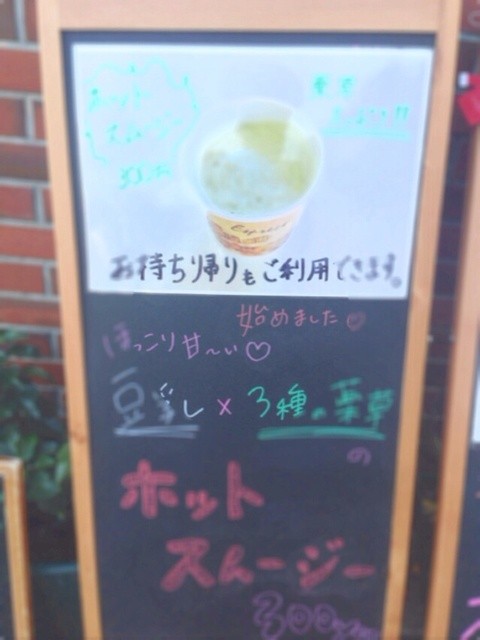 ホット
スムージー
お持ち帰りもご利用できます。
始めました♡
ほっこり甘〜い♡
豆乳し×3種の薬草
の
ホット
スムージー